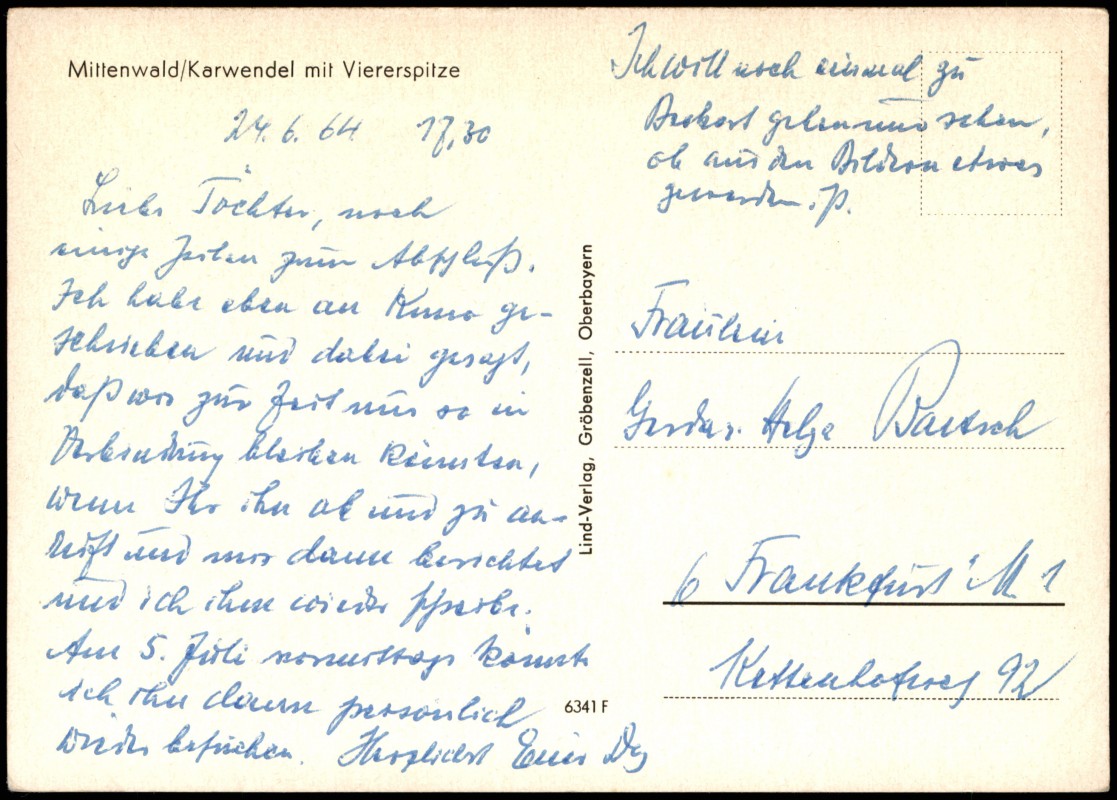 Mittenwald/Karwendel mit Viererspitze
24.6.64 17,30
Liebe Töchter, noch
einige Zeilen zum Abschluß.
Ich habe eben an Kuno ge-
schrieben und dabei gesagt,
daß wir zur Zeit nur so in
Verbindung bleiben könnten,
wenn Ihr ihn ab und zu an-
ruft und mir dann berichtet
und ich ihm wieder schreibe.
Am 5. Juli vormittags könnte
ich ihn dann persönlich
wieder besuchen. Herzlichst Euer
Lind-Verlag, Gröbenzell, Oberbayern
6341 F
Ich will noch einmal zu
gehen und sehen,
ob aus den Bildern etwas
geworden. P.
Fräulein
Gerda u. Helga Baetsch
6 Frankfurt M 1
Kettenhofweg 92